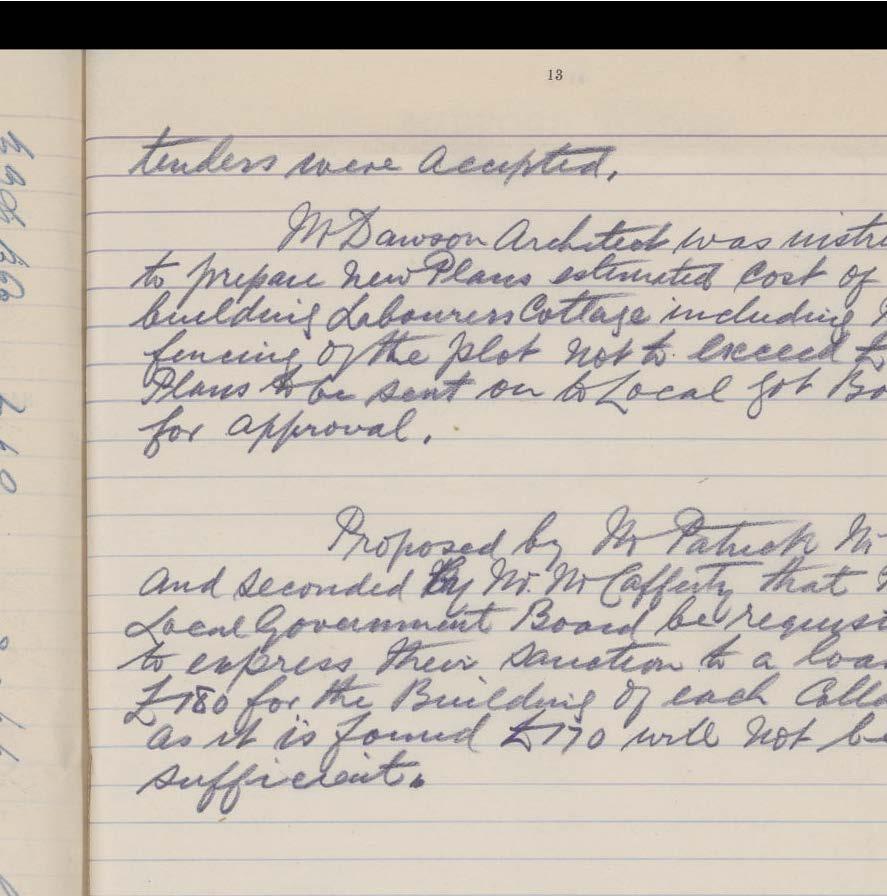 13
tenders were Accepted.
Mr Dawson Architect was instru
to prepare New Plans estimated Cost of
building Labourers Cottage including
fencing of the plot not to exceed £
Plans to be sent on to Local Got Bo
for approval.
Proposed by Mr Patrick Mc
And seconded By Mr. McCafferty that
Local Government Board be requis
to express their sanction to a loan
£180 for the Building of each Cotta
as it is found £170 will not be
sufficient.